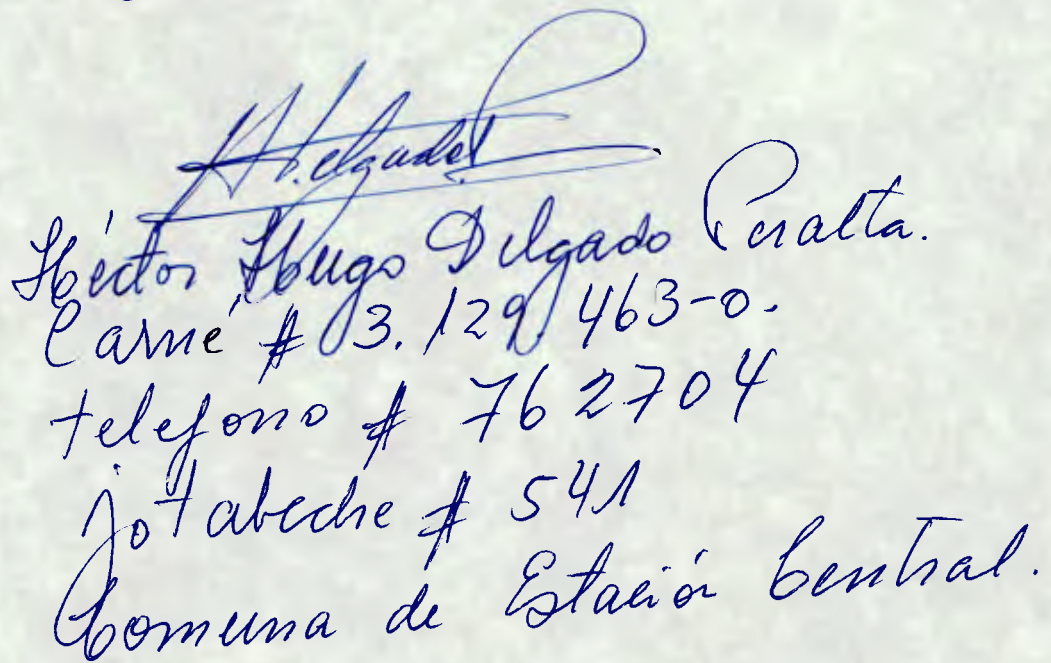 H. Delgado P.
Héctor Hugo Delgado Peralta.
Carné # 3.129.463-0.
telefono # 762704
jotabeche # 541
Comuna de Estación Central.